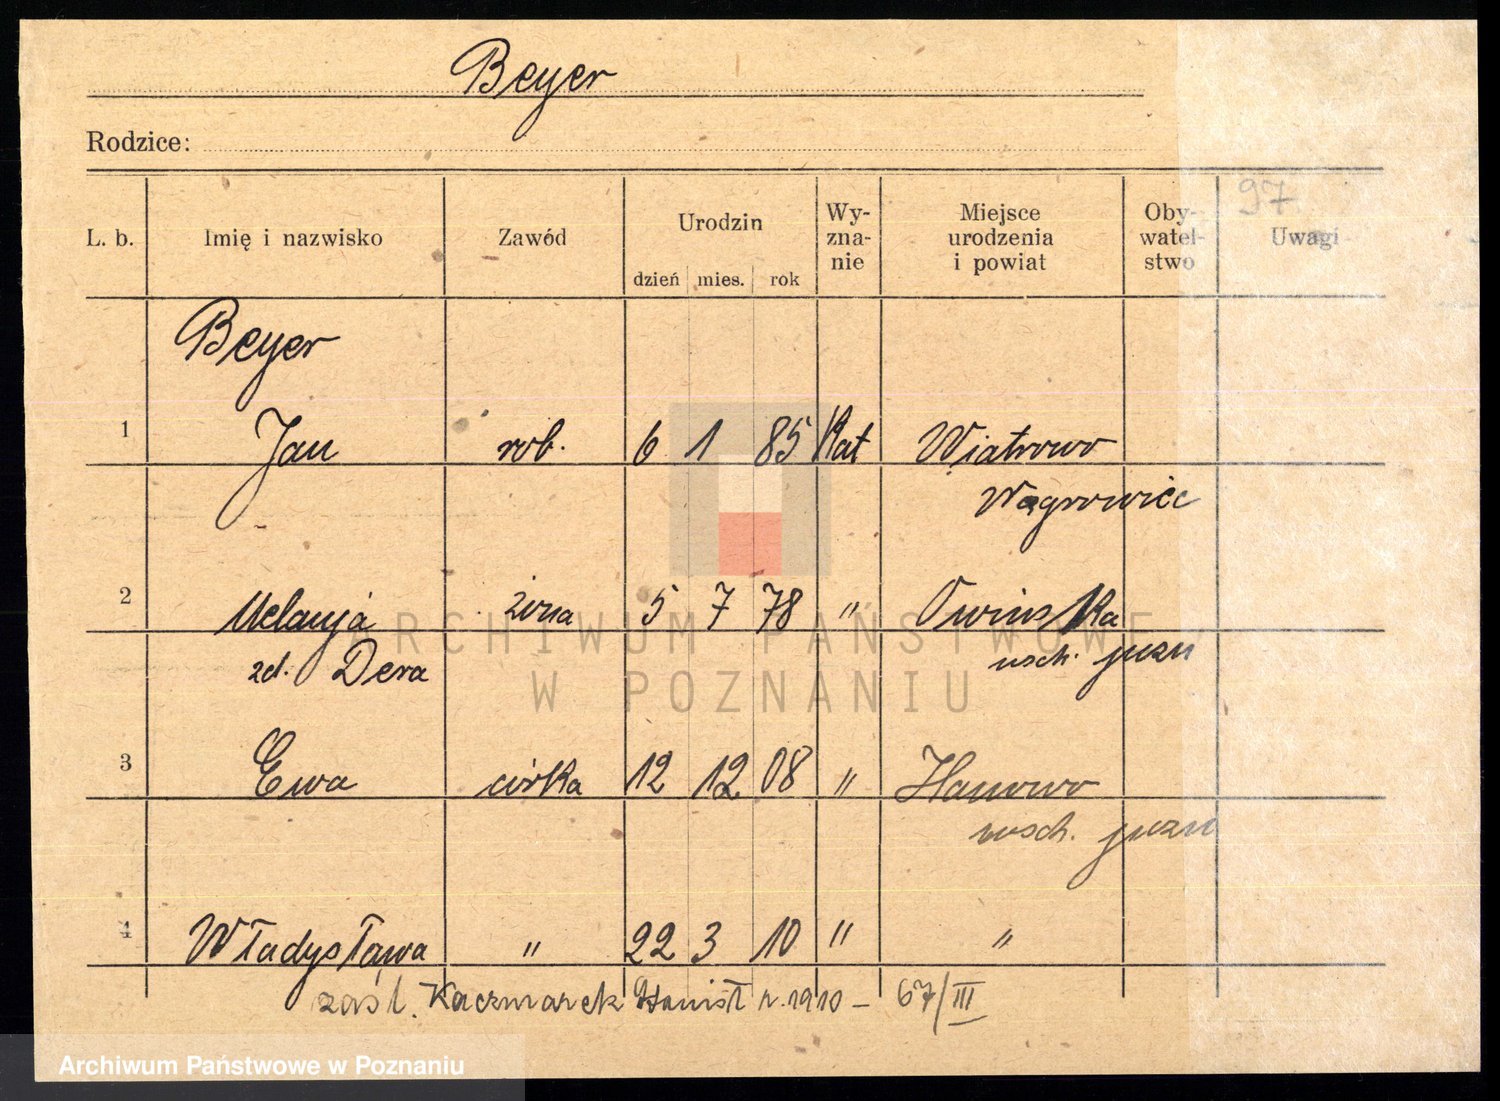 Beyer
Rodzice:
97
L. b. Imię i nazwisko Zawód Urodzin dzień mies. rok Wy-zna-nie Miejsce urodzenia i powiat Oby-watel-stwo Uwagi
Beyer
1 Jan rob. 6 1 85 Kat Wiatrowo
Wągrowiec
2 Melanja żona 5 7 78 " Owińska
zd. Dera wsch. pozn
3 Ewa córka 12 12 08 "
wsch. pozn
4 Władysława " 22 3 10 " "
zaśl. Kaczmarek Stanisł r. 1910 – 67/III
ARCHIWUM PAŃSTWOWE
W POZNANIU
Archiwum Państwowe w Poznaniu